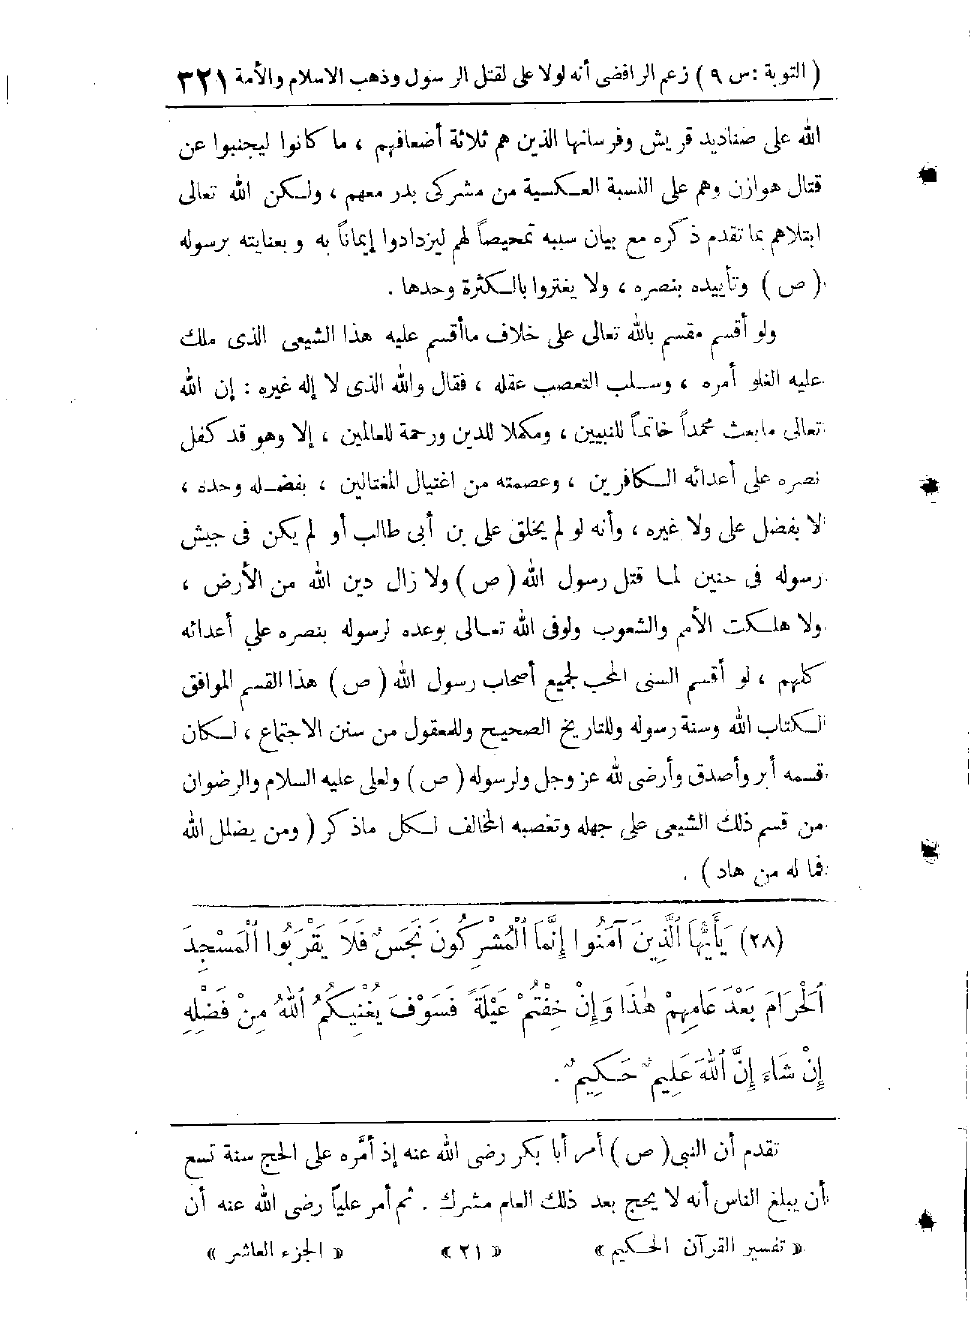 ( التوبة : س ٩ ) زعم الرافضى أنه لولا على لقتل الرسول وذهب الاسلام والأمة ٣٢١
الله على صناديد قريش وفرسانها الذين هم ثلاثة أضعافهم ، ما كانوا ليجنبوا عن
قتال هوازن وهم على النسبة العكسية من مشركى بدر معهم ، ولكن الله تعالى
ابتلاهم بما تقدم ذكره مع بيان سببه تمحيصاً لهم ليزدادوا إيماناً به وبعنايته برسوله
( ص ) وتأييده بنصره ، ولا يغتروا بالكثرة وحدها .
ولو أقسم مقسم بالله تعالى على خلاف ماأقسم عليه هذا الشيعى الذى ملك
عليه الغلو أمره ، وسلب التعصب عقله ، فقال والله الذى لا إله غيره : إن الله
تعالى مابعث محمداً خاتماً للنبيين ، ومكملا للدين ورحمة للعالمين ، إلا وهو قد كفل
نصره على أعدائه الكافرين ، وعصمته من اغتيال المغتالين ، بفضله وحده ،
لا بفضل على ولا غيره ، وأنه لو لم يخلق على بن أبى طالب أو لم يكن فى جيش
رسوله فى حنين لما قتل رسول الله ( ص ) ولا زال دين الله من الأرض ،
ولا هلكت الأمم والشعوب ولوفى الله تعالى بوعده لرسوله بنصره على أعدائه
كلهم ، لو أقسم السنى المحب لجميع أصحاب رسول الله ( ص ) هذا القسم الموافق
لكتاب الله وسنة رسوله وللتاريخ الصحيح وللمعقول من سنن الاجتماع ، لكان
قسمه أبر وأصدق وأرضى لله عز وجل ولرسوله ( ص ) ولعلى عليه السلام والرضوان
من قسم ذلك الشيعى على جهله وتعصبه المخالف لكل ماذكر ( ومن يضلل الله
فما له من هاد ) .
(٢٨) يَأَيُّهَا ٱلَّذِينَ آمَنُوا إِنَّمَا ٱلْمُشْرِكُونَ نَجَسٌ فَلَا يَقْرَبُوا ٱلْمَسْجِدَ
ٱلْحَرَامَ بَعْدَ عَامِهِمْ هٰذَا وَإِنْ خِفْتُمْ عَيْلَةً فَسَوْفَ يُغْنِيكُمُ ٱللهُ مِنْ فَضْلِهِ
إِنْ شَاءَ إِنَّ ٱللهَ عَلِيمٌ حَكِيمٌ .
تقدم أن النبى ( ص ) أمر أبا بكر رضى الله عنه إذ أمَّره على الحج سنة تسع
أن يبلغ الناس أنه لا يحج بعد ذلك العام مشرك . ثم أمر علياً رضى الله عنه أن
« تفسير القرآن الحكيم » « ٢١ » « الجزء العاشر »